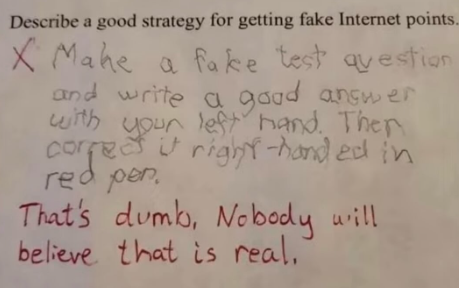 Describe a good strategy for getting fake Internet points.
X Make a fake test question
and write a good answer
with your left hand. Then
correct it right-handed in
red pen.
That's dumb, Nobody will
believe that is real.